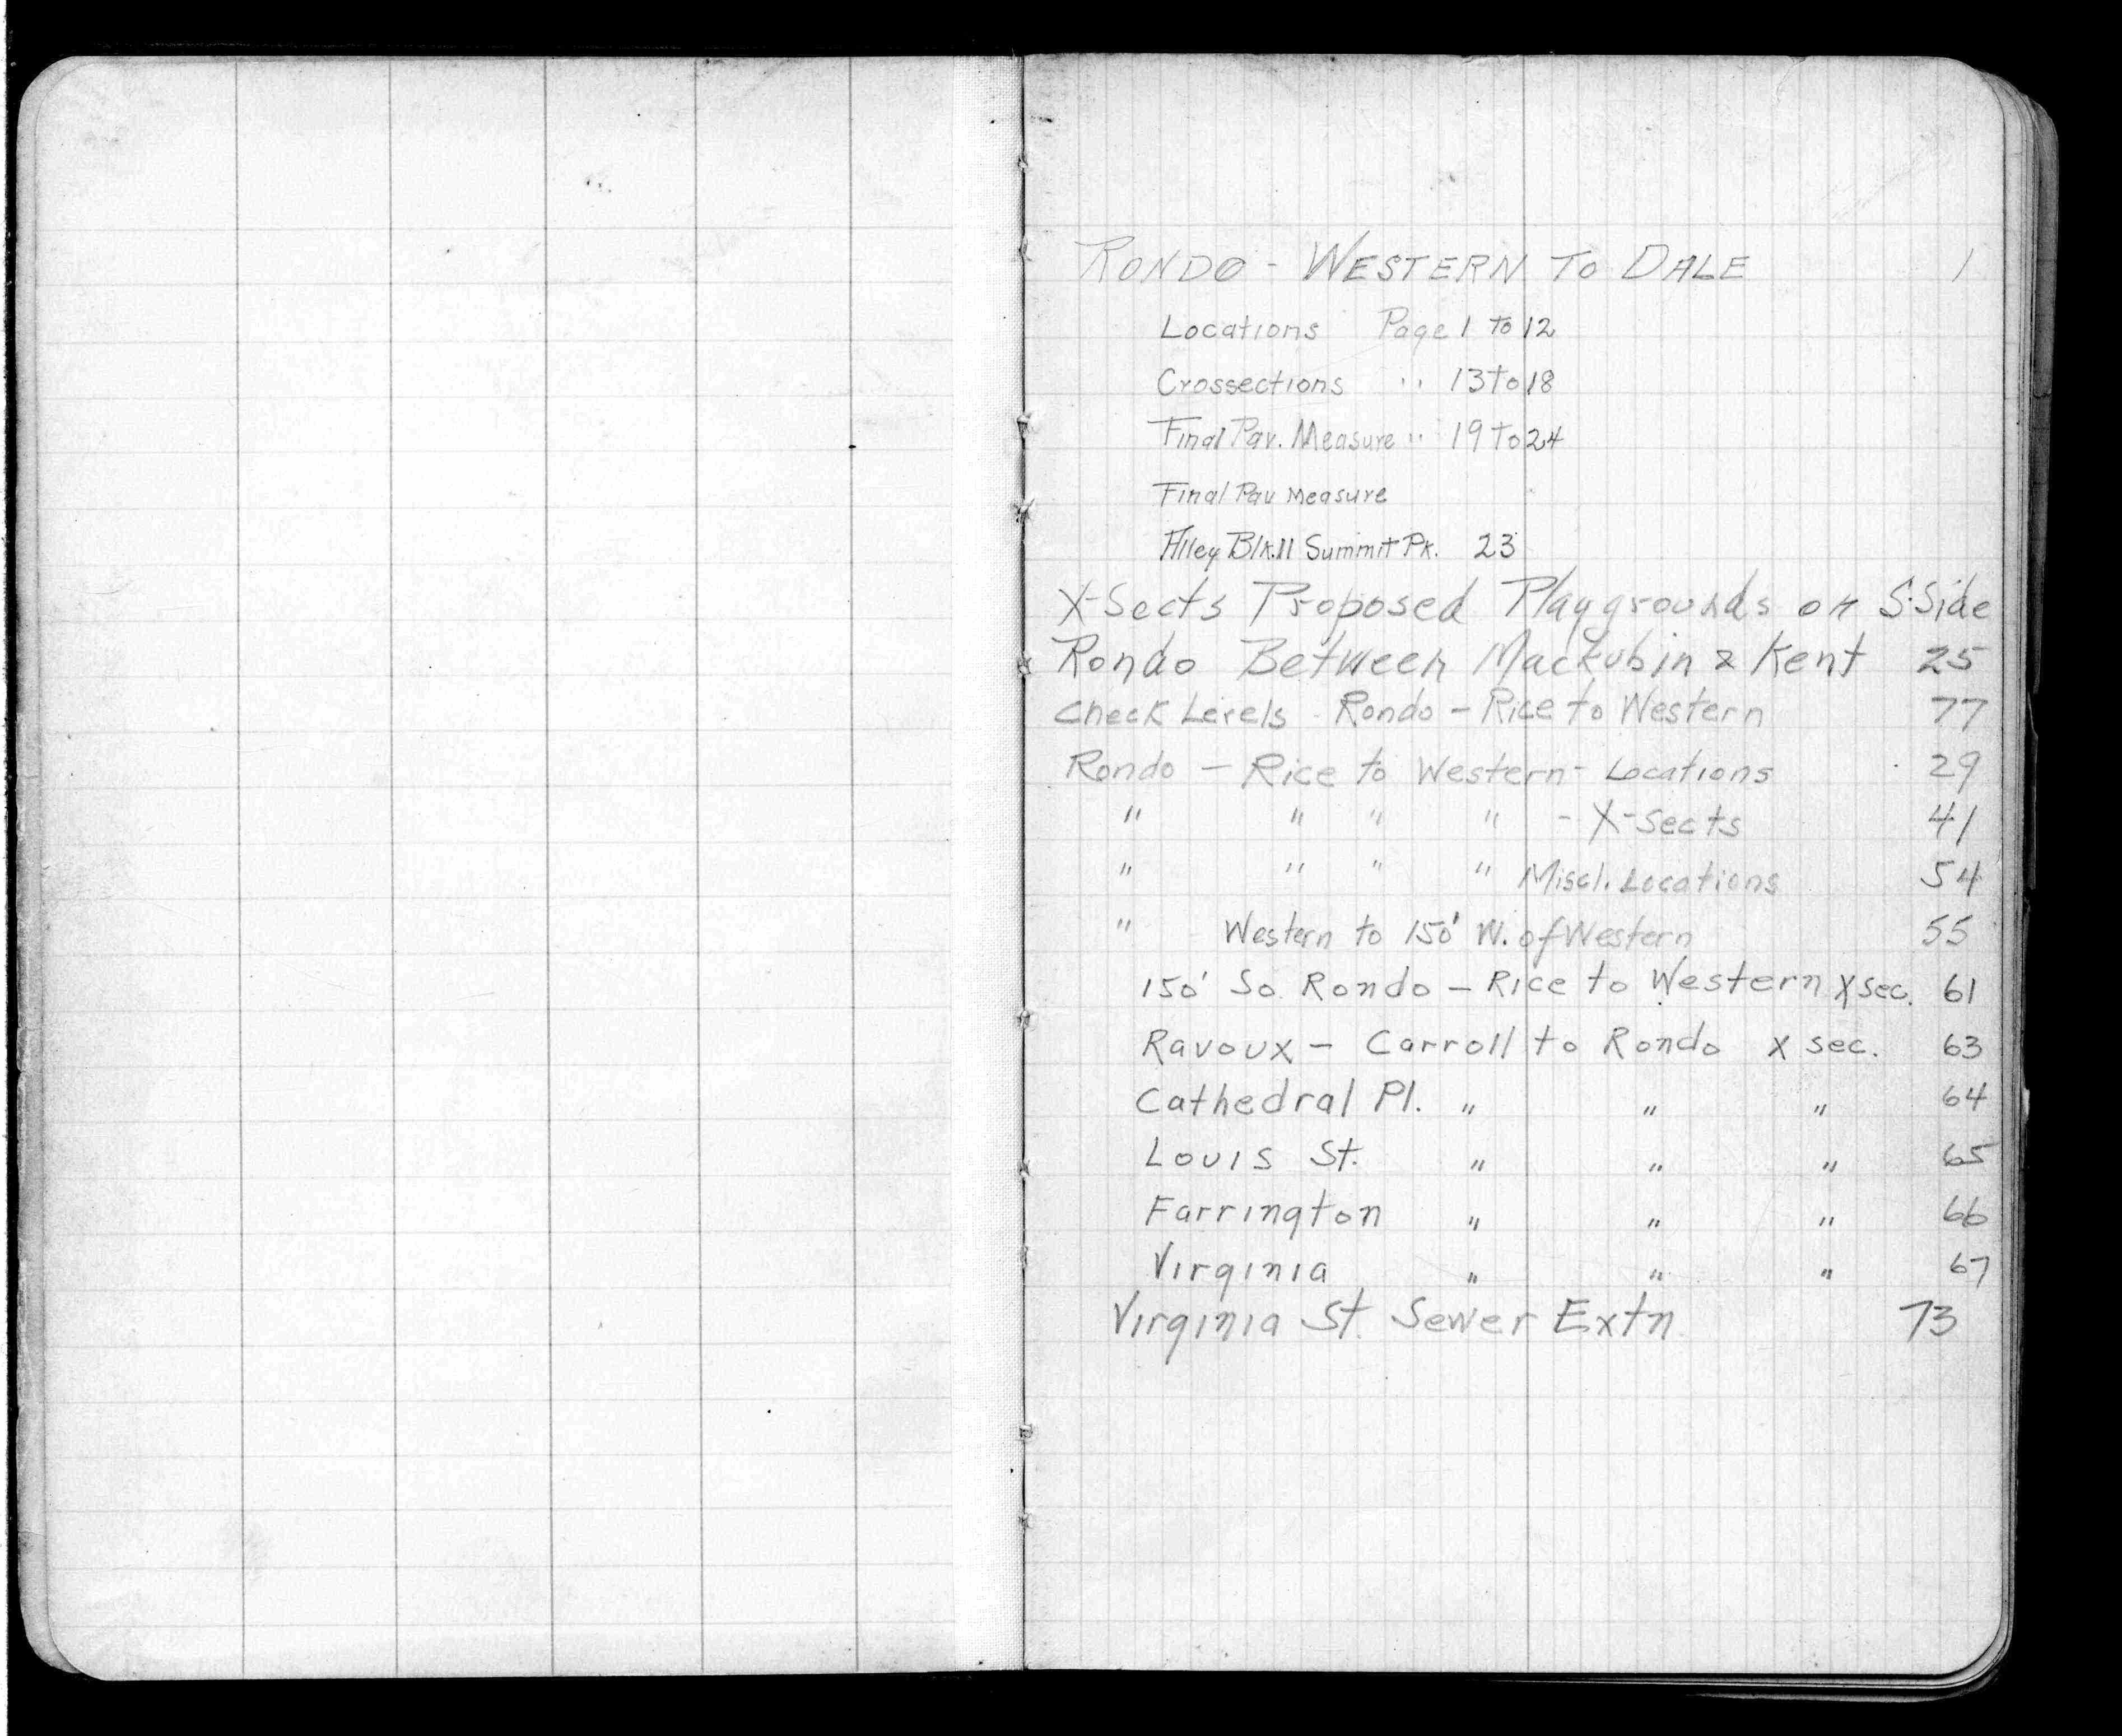 RONDO - WESTERN TO DALE 1
Locations Page 1 to 12
Crossections " 13 to 18
Final Pav. Measure " 19 to 24
Final Pav Measure
Alley Blk.11 Summit Pk. 23
X-Sects Proposed Playgrounds on S. Side
Rondo Between Mackubin & Kent 25
Check Levels - Rondo - Rice to Western 77
Rondo - Rice to Western - Locations 29
" " " " - X-Sects 41
" " " " Miscl. Locations 54
" Western to 150' W. of Western 55
150' So. Rondo - Rice to Western X sec. 61
Ravoux - Carroll to Rondo X sec. 63
Cathedral Pl. " " " 64
Louis St. " " " 65
Farrington " " " 66
Virginia " " " 67
Virginia St. Sewer Extn. 73